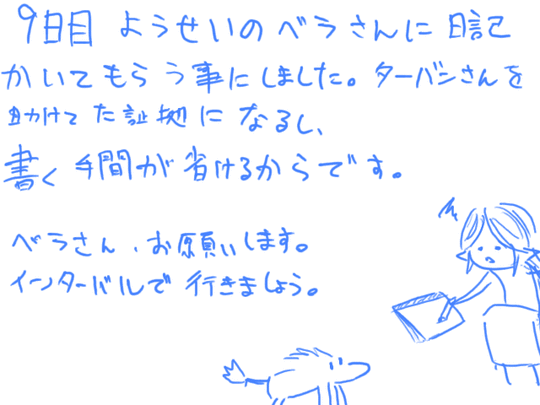 9日目 ようせいのベラさんに日記
かいてもらう事にしました。ターバンさんを
助けてた証拠になるし、
書く手間が省けるからです。
ベラさん、お願いします。
インターバルで行きましょう。